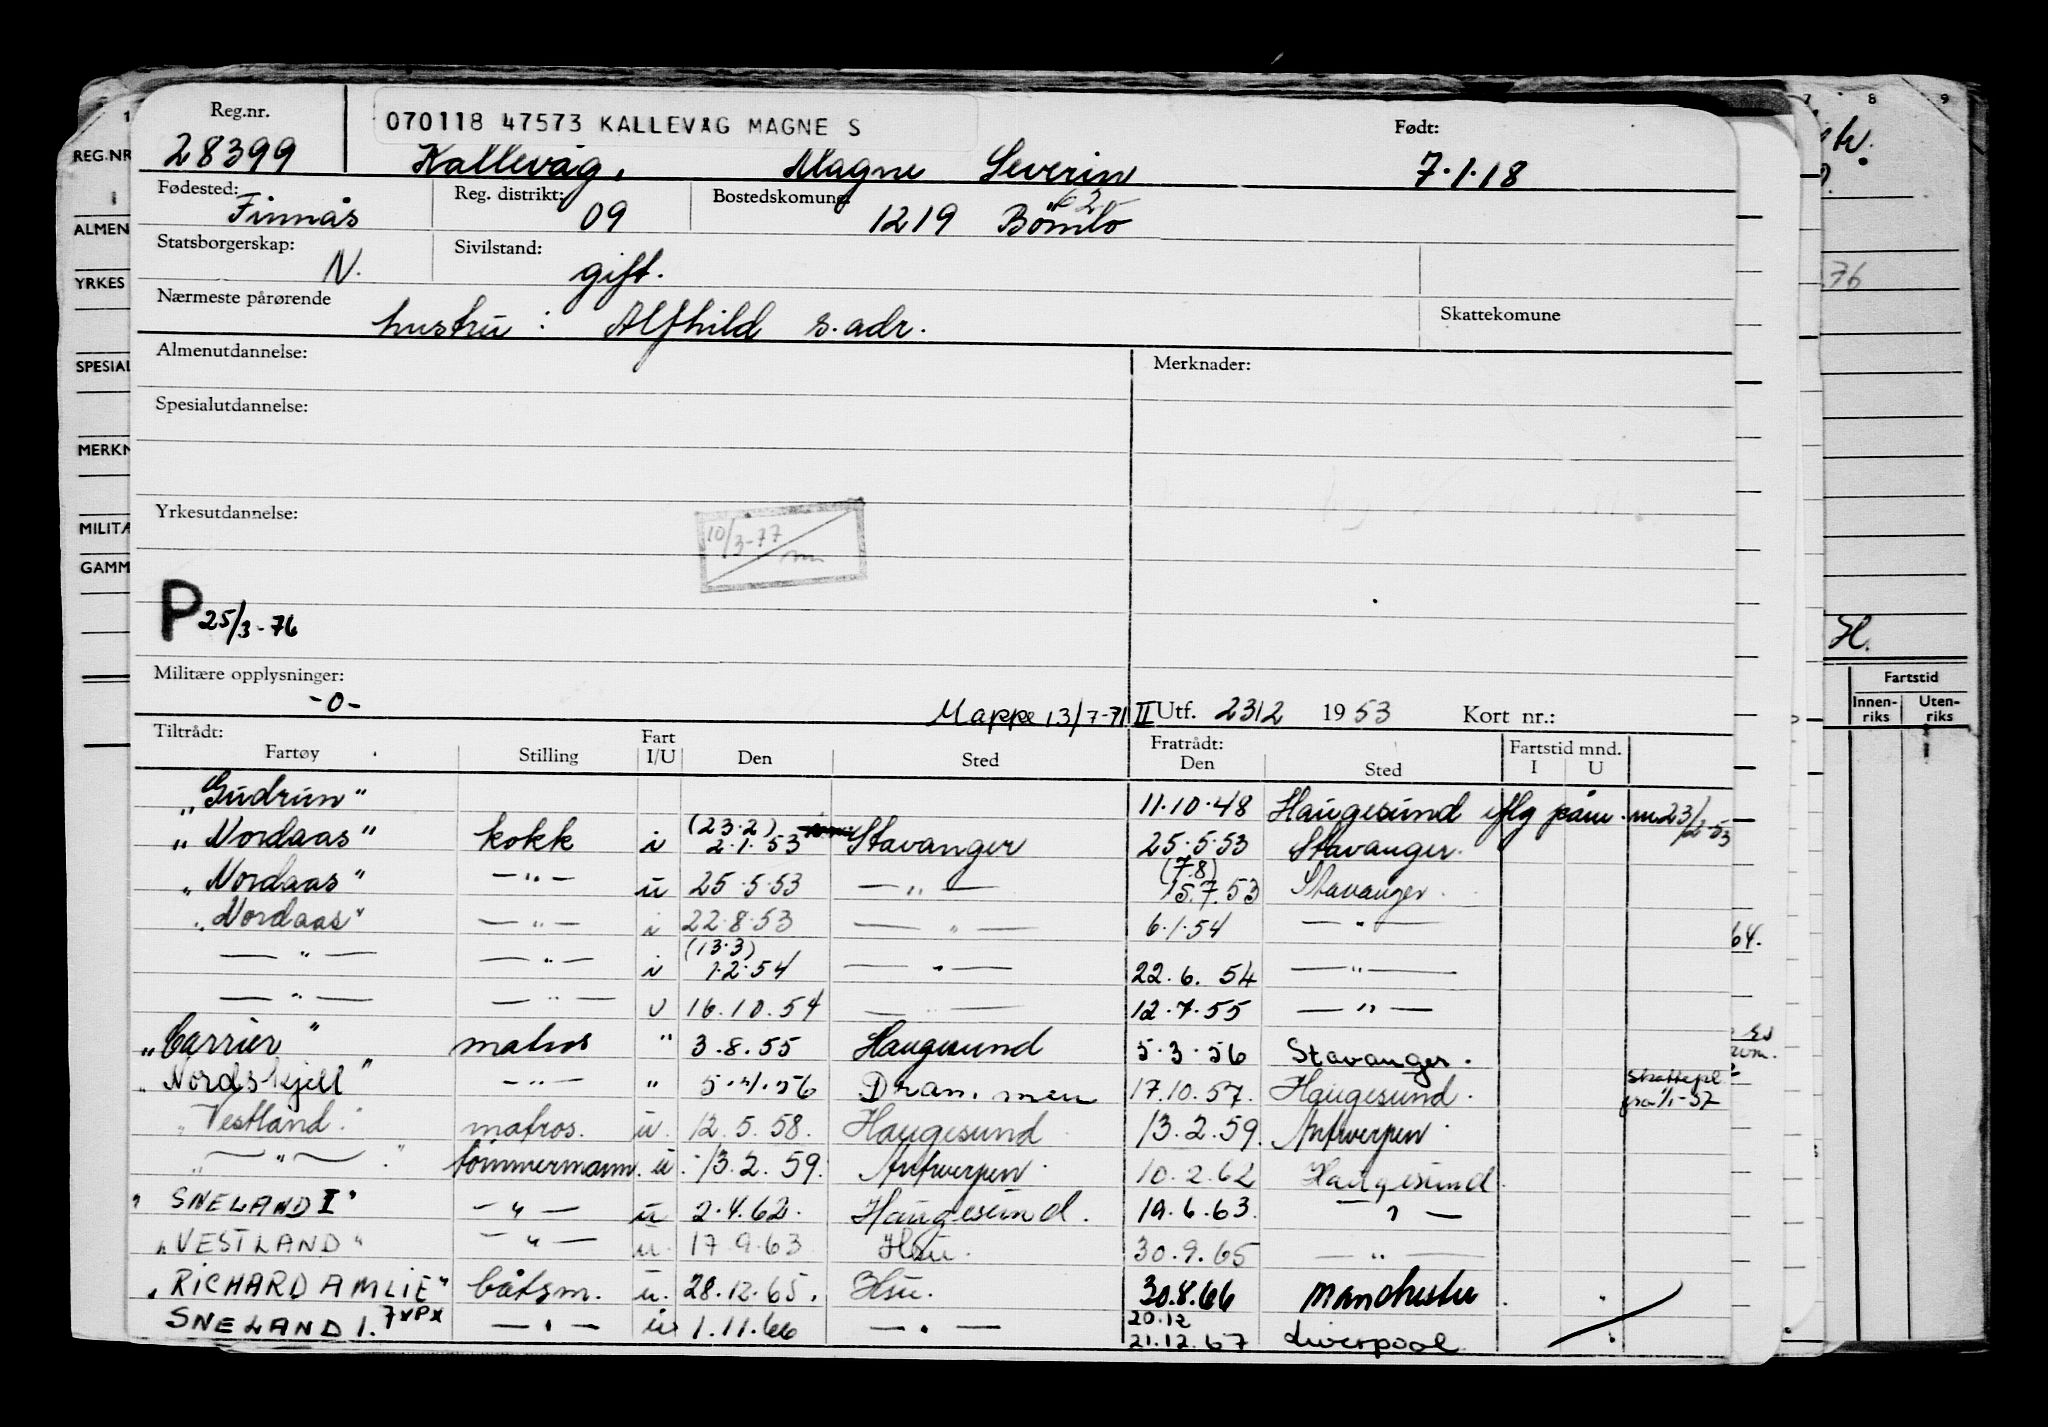 Reg.nr. 070118 47573 KALLEVÅG MAGNE S Født:
28399 Kallevåg, Magne Severin 7.1.18
Fødested: Reg. distrikt: Bostedskomune:
Finnås 09 1219 Bömlo
Statsborgerskap: Sivilstand:
N. gift.
Nærmeste pårørende Skattekomune
hustru : Alfhild s.adr.
Almenutdannelse: Merknader:
Spesialutdannelse:
Yrkesutdannelse:
10/3-77
P 25/3-76
Militære opplysninger:
-0- Mappe 13/7-71 II Utf. 23/2 1953 Kort nr.:
Tiltrådt: Fart Fratrådt: Fartstid mnd.
Fartøy Stilling I/U Den Sted Den Sted I U
"Gudrun" 11.10.48 Haugesund iflg påm. m 23/2-53
"Nordaas" kokk i (23.2) 2.1.53 Stavanger 25.5.53 Stavanger.
"Nordaas" —"— u 25.5.53 —"— (7.8) 15.7.53 Stavanger.
"Nordaas" —"— i 22.8.53 —"— 6.1.54 —"—
—"— —"— i (13.3) 1.2.54 —"— 22.6.54 —"—
—"— —"— u 16.10.54 —"— 12.7.55 —"—
"Carrier" matros " 3.8.55 Haugesund 5.3.56 Stavanger.
"Nordskjell" —"— " 5.4.56 Drammen 17.10.57. Haugesund. Skattepl fra 1/1-57
"Vestland" matros. u. 12.5.58. Haugesund 13.2.59. Antwerpen
—"— tömmermann. u. 13.2.59. Antwerpen 10.2.62 Haugesund.
"SNELAND I" —"— u 2.4.62. Haugesund. 19.6.63. —"—
"VESTLAND" —"— u. 17.9.63 Hsu. 30.9.65 —"—
"RICHARD AMLIE" båtsm. u. 28.12.65. Hsu. 30.8.66 Manchester
SNELAND 1. 7xPx —"— u 1.11.66 —"— 20.12 21.12.67 Liverpool
REG.NR
ALMEN
YRKES
SPESIAL
MERKN
MILITÆ
GAMM
7 8 9
76
H.
Fartstid
Innen-riks Uten-riks
64.